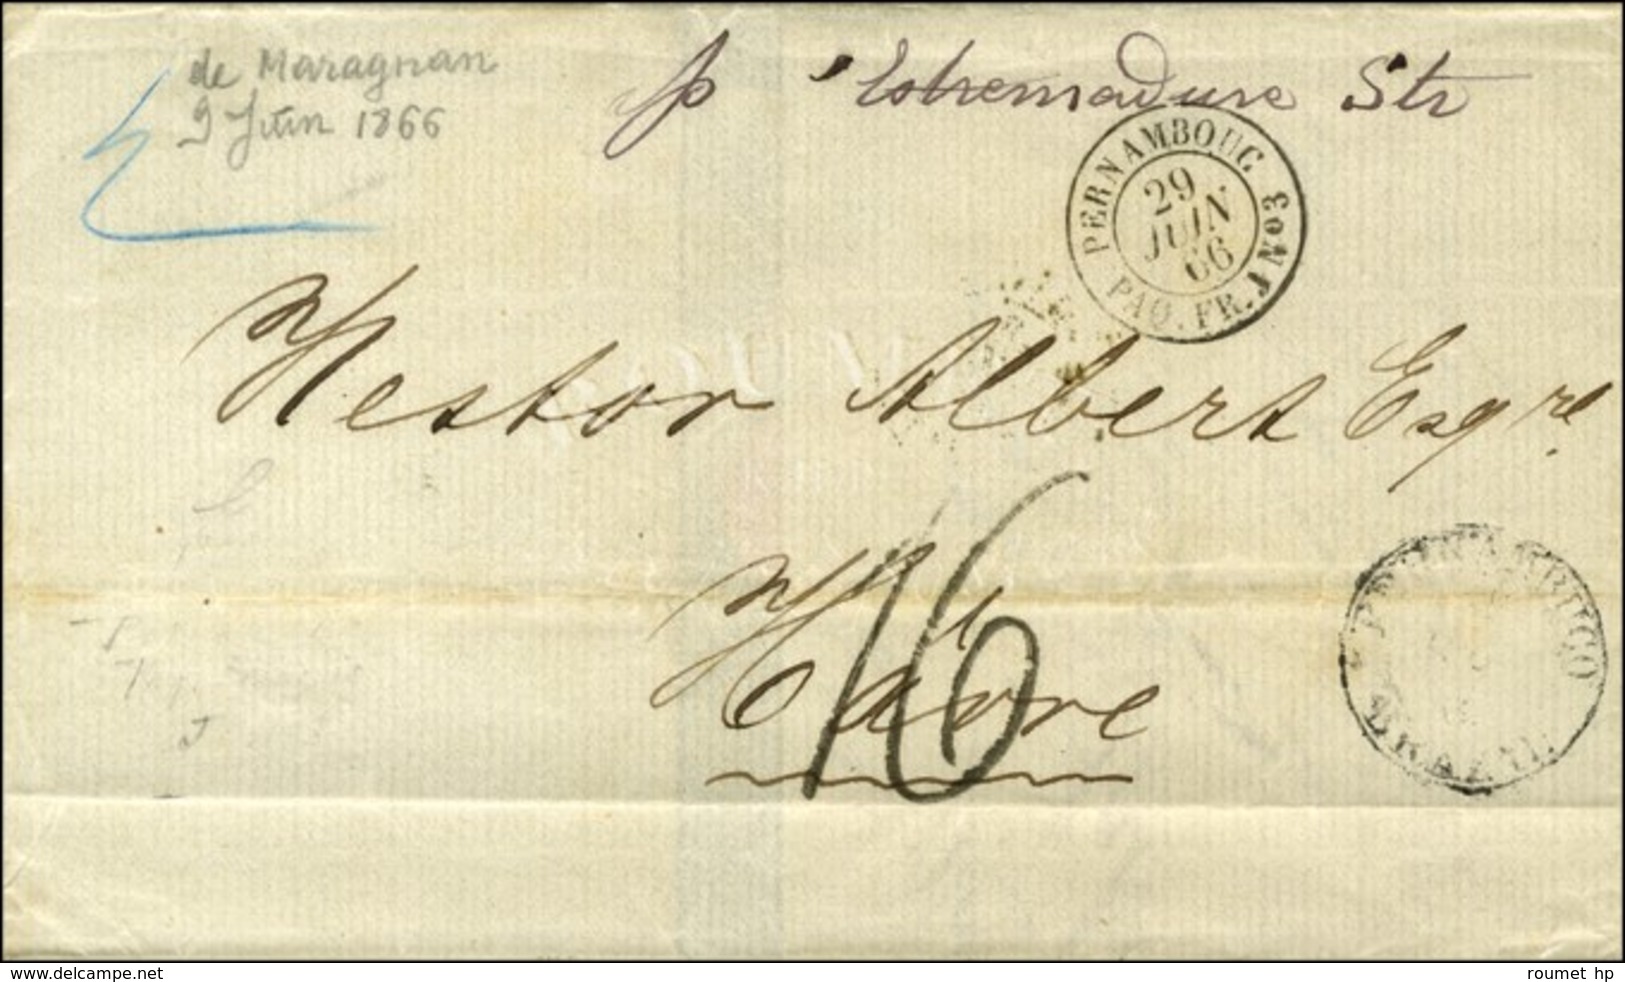 de Maragnan
9 Juin 1866
p Estremadure Str
PERNAMBOUC
29
JUIN
66
PAQ. FR. J No3
Nestor Albert Esqre
16
Havre
PERNAMBUCO
BRAZIL
www.delcampe.net
roumet hp